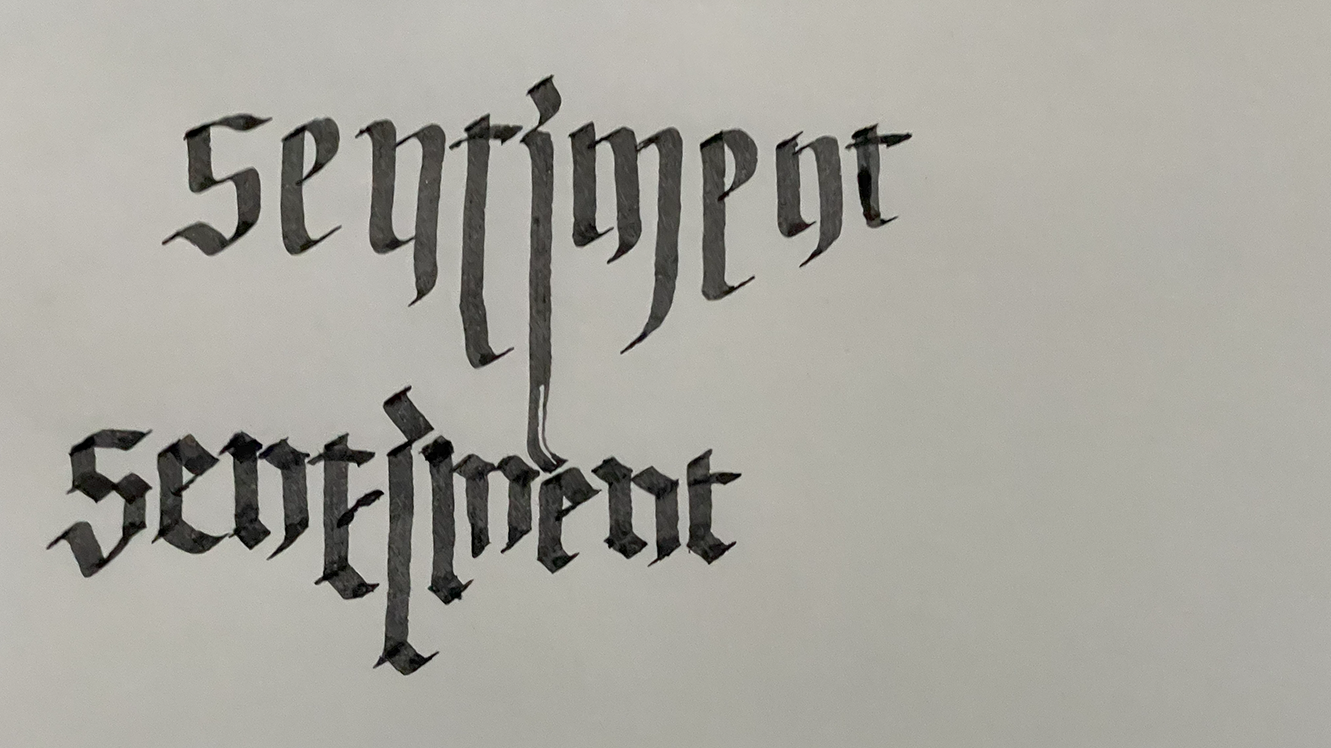 sentiment
sentiment